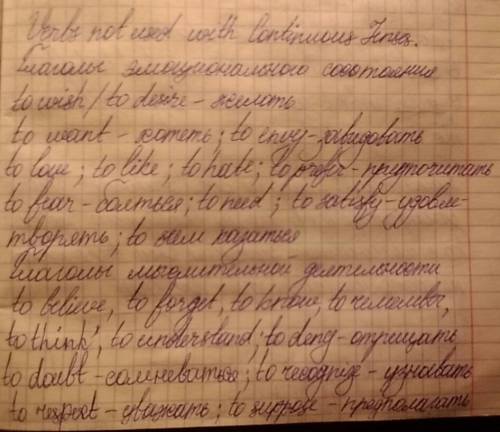 Verbs not used with Continuous Tenses.
Глаголы эмоционального состояния
to wish / to desire - желать
to want - хотеть; to envy - завидовать
to love; to like; to hate; to prefer - предпочитать
to fear - бояться; to need; to satisfy - удовле-
творять; to seem казаться
Глаголы мыслительной деятельности
to believe, to forget, to know, to remember,
to think, to understand; to deny - отрицать
to doubt - сомневаться; to recognize - узнавать
to respect - уважать; to suppose - предполагать